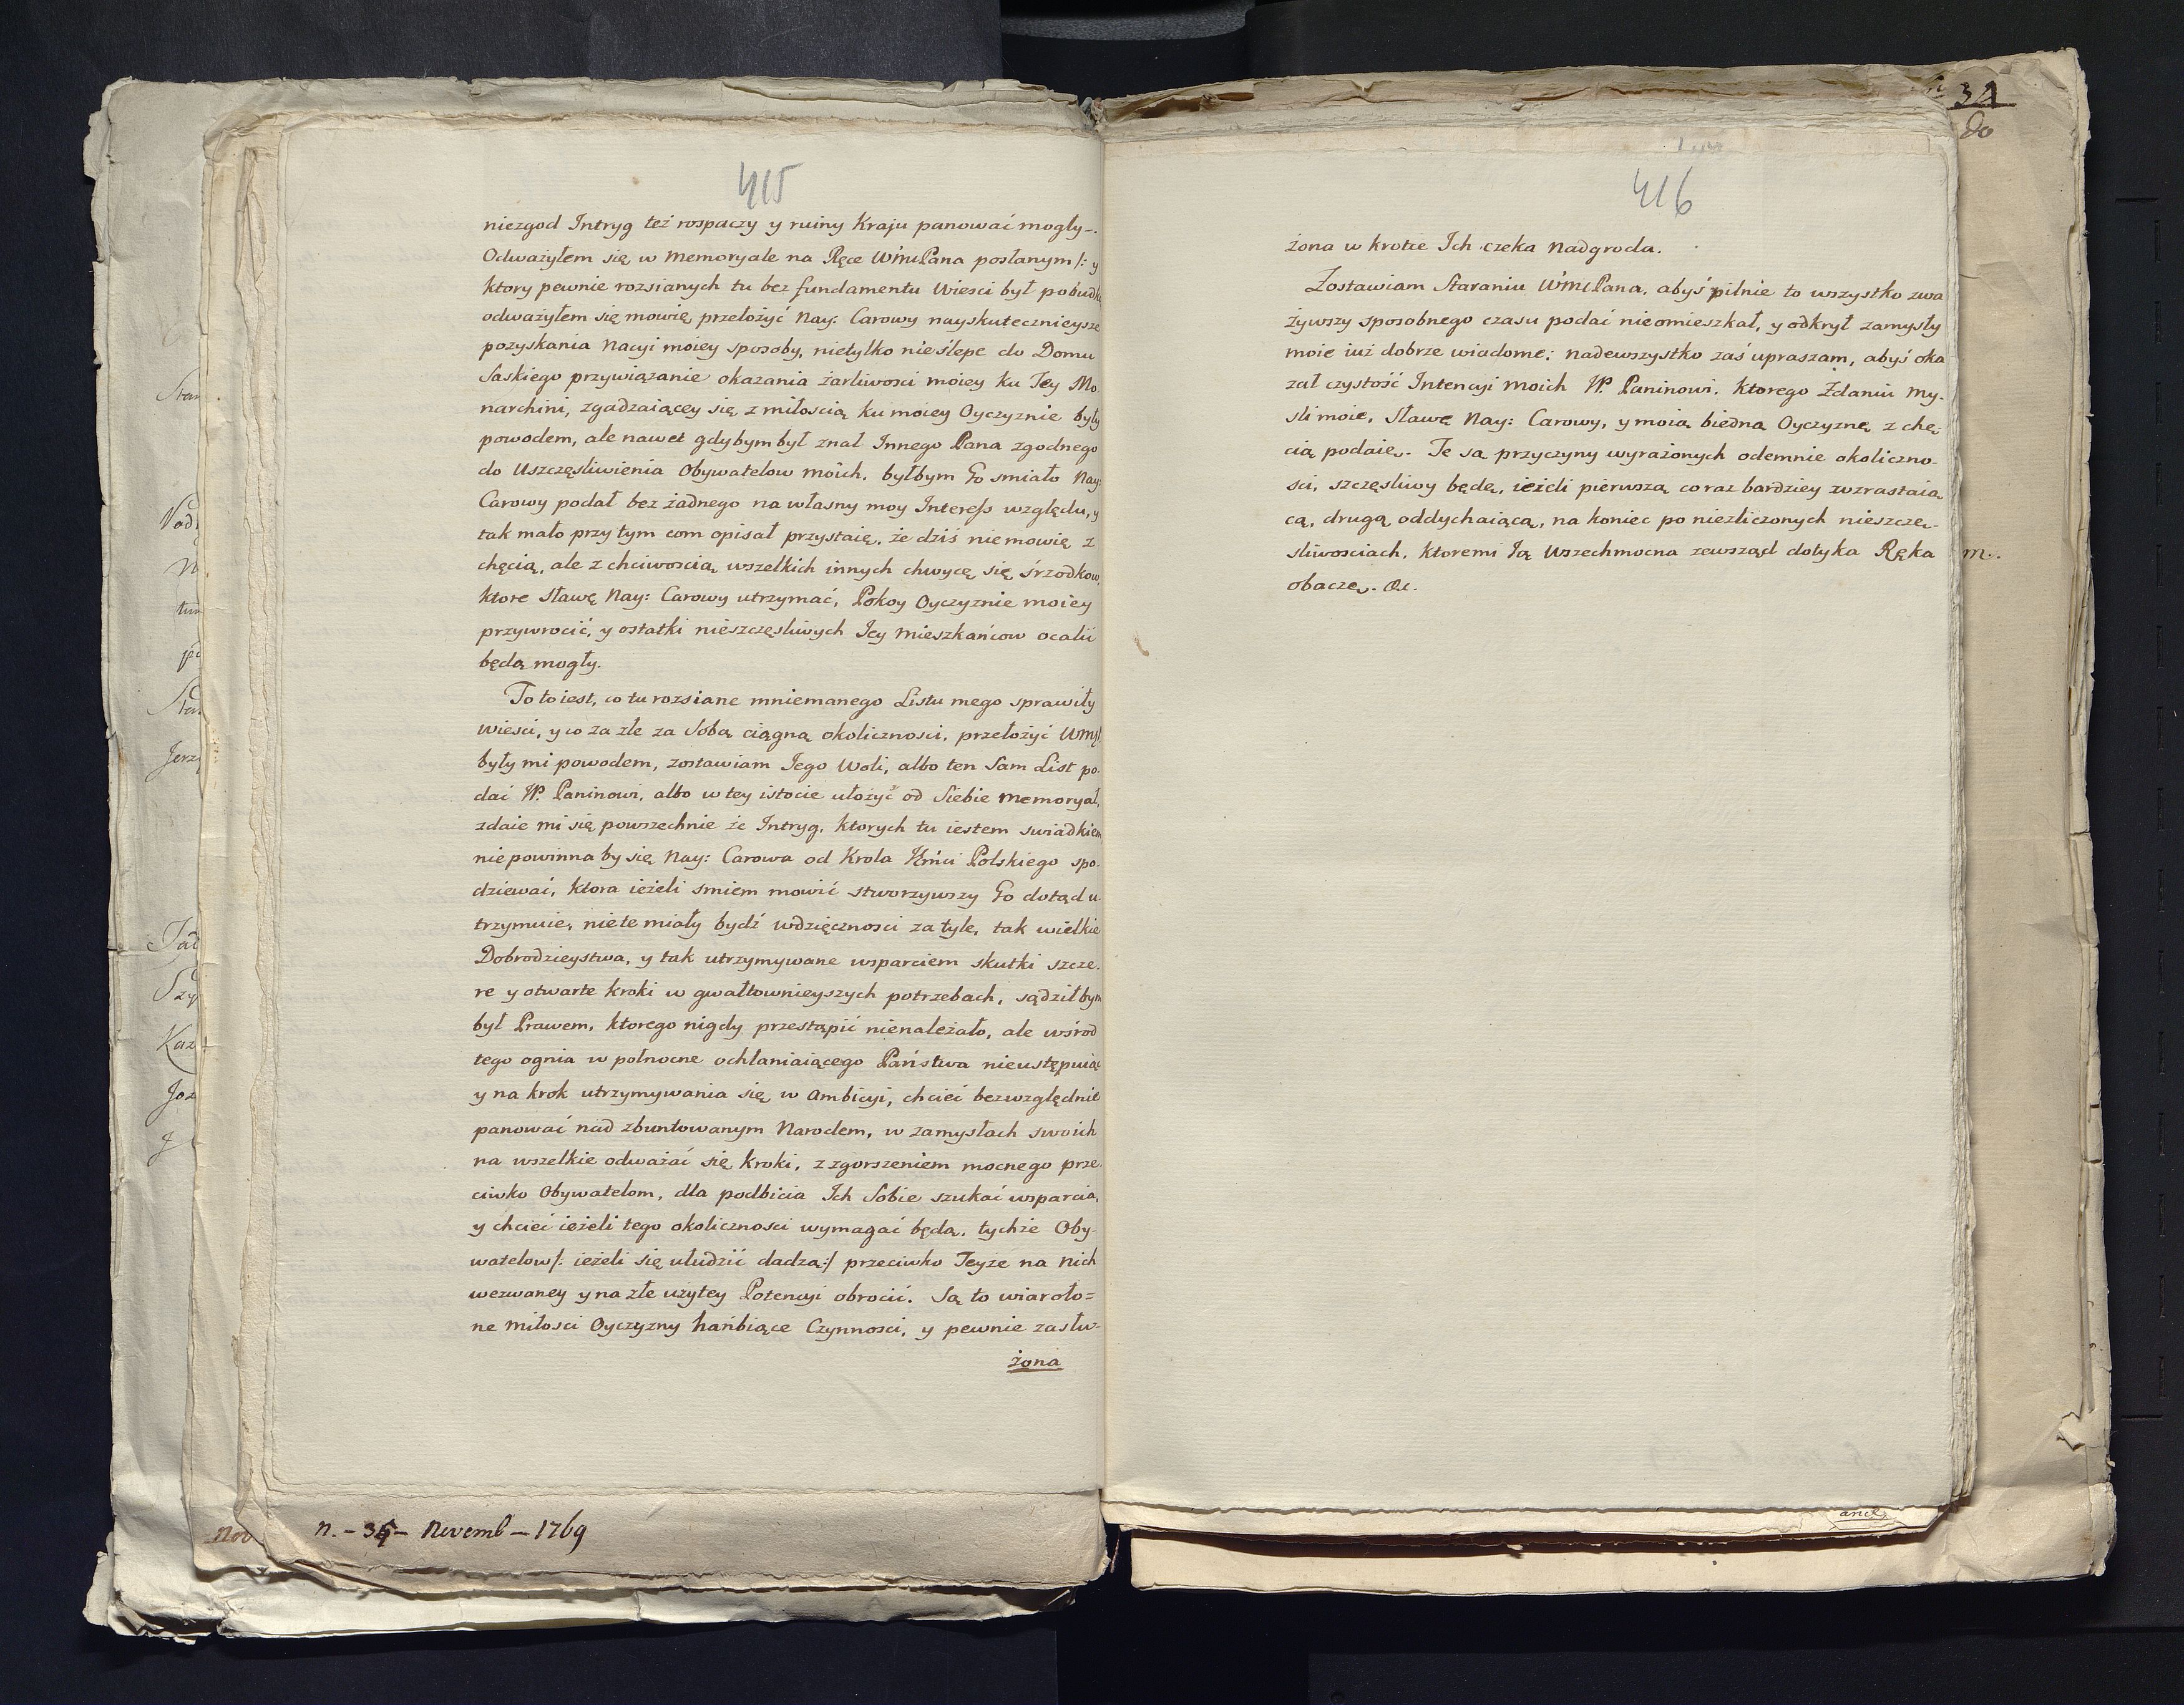 415
niezgod Intryg też rospaczy y ruiny Kraju panować mogły-.
Odważyłem się w Memoryale na Ręce WmPana posłanym /: y
ktory pewnie rozsianych tu bez fundamentu Wiesci był pobudk
odważyłem się mowię przełożyć Nay: Carowy nayskutecznieysze
pozyskania Nacyi moiey sposoby, nietylko nieślepe do Domu
Saskiego przywiązanie okazania żarliwosci moiey ku Jey Mo
narchini, zgadzaiącey się z miłoscią ku moiey Oyczyznie były
powodem, ale nawet gdybym był znał Innego Pana zgodnego
do Uszczęsliwienia Obywatelow moich. byłbym Go smiało Nay:
Carowy podał bez żadnego na własny moy Interess względu, y
tak mało przy tym com opisał przystaię, że dziś niemowię z
chęcią, ale z chciwoscią wszelkich innych chwycę się śrzodkow,
ktore Sławę Nay: Carowy utrzymać, Pokoy Oyczyznie moiey
przywrocić, y ostatki nieszczęsliwych Jey Mieszkańcow ocalić
będą mogły.
To to iest, co tu rozsiane mniemanego Listu mego sprawiły
wiesci, y co za złe za Sobą ciągną okolicznosci, przełożyć
były mi powodem, zostawiam Jego Woli, albo ten Sam List po-
dać JP. Paninowi, albo w tey istocie ułożyć od Siebie Memoryał,
zdaie mi się powszechnie że Intryg, ktorych tu iestem swiadkiem
niepowinna by się Nay: Carowa od Krola Jmci Polskiego spo-
dziewać, ktora ieżeli smiem mowić stworzywszy Go dotąd u-
trzymuie, nie te miały bydź wdzięcznosci za tyle, tak wielkie
Dobrodzieystwa, y tak utrzymywane wsparciem skutki szcze-
re y otwarte kroki w gwałtownieyszych potrzebach, sądził bym
był Prawem, ktorego nigdy przestąpić nienależało, ale wśrod
tego ognia w połnocne ochłaniaiącego Państwa nieustępuiąc
y na krok utrzymywania się w Ambicyi, chcieć bezwzględnie
panować nad zbuntowanym Narodem, w zamysłach swoich
na wszelkie odważać się kroki, z zgorszeniem mocnego prze-
ciwko Obywatelom, dla podbicia Ich Sobie szukać wsparcia,
y chcieć ieżeli tego okolicznosci wymagać będą, tychże Oby-
watelow /: ieżeli się ułudzić dadzą :/ przeciwko Teyże na Nich
wezwaney y na złe użytey Potencyi obrocić. Są to wiaroło=
ne miłosci Oyczyzny hańbiące Czynnosci, y pewnie zasłu-
żona
n. - - Novemb - 1769
Nov
416
żona w krotce Ich czeka Nadgroda.
Zostawiam Staraniu WmPana, abyś pilnie to wszystko zwa
żywszy sposobnego czasu podać nieomieszkał, y odkrył zamysły
moie iuż dobrze wiadome; nadewszystko zaś upraszam, abyś oka
zał czystość Intencyi Moich JP. Paninowi, ktorego Zdaniu My-
sli moie, Sławę Nay: Carowy, y moią biedną Oyczyznę z chę-
cią podaię. Te są przyczyny wyrażonych odemnie okoliczno-
sci, szczęsliwy będę, ieżeli pierwszą coraz bardziey wzrastaią
cą, drugą oddychaiącą, na koniec po niezliczonych nieszczę-
sliwosciach, ktoremi Ją Wszechmocna zewsząd dotyka Ręka
obaczę. &c.